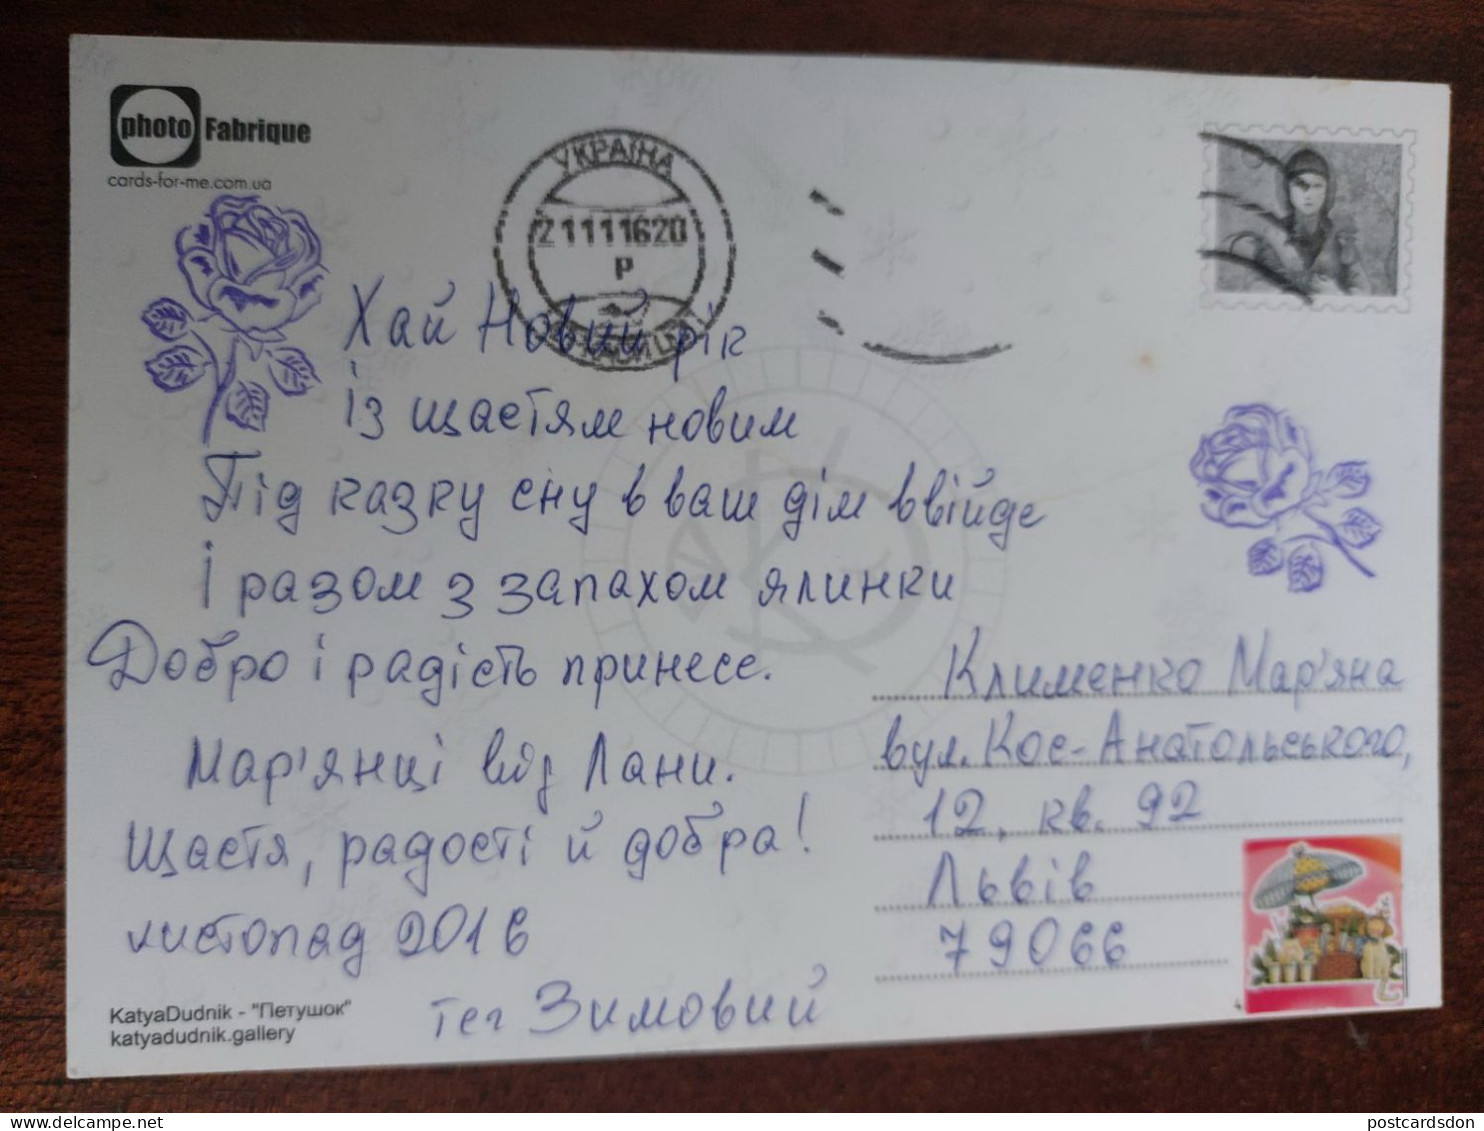 photo Fabrique
cards-for-me.com.ua
УКРАЇНА
21111620
Р
Хай Новий рік
із щастям новим
Під казку сну в ваш дім ввійде
І разом з запахом ялинки
Добро і радість принесе.
Мар'янці від Лани.
Щастя, радості й добра!
листопад 2016
тег Зимовий
KatyaDudnik - "Петушок"
katyadudnik.gallery
Клименко Мар'яна
вул. Кос-Анатольського,
12, кв. 92
Львів
79066
delcampe.net
postcardsdon